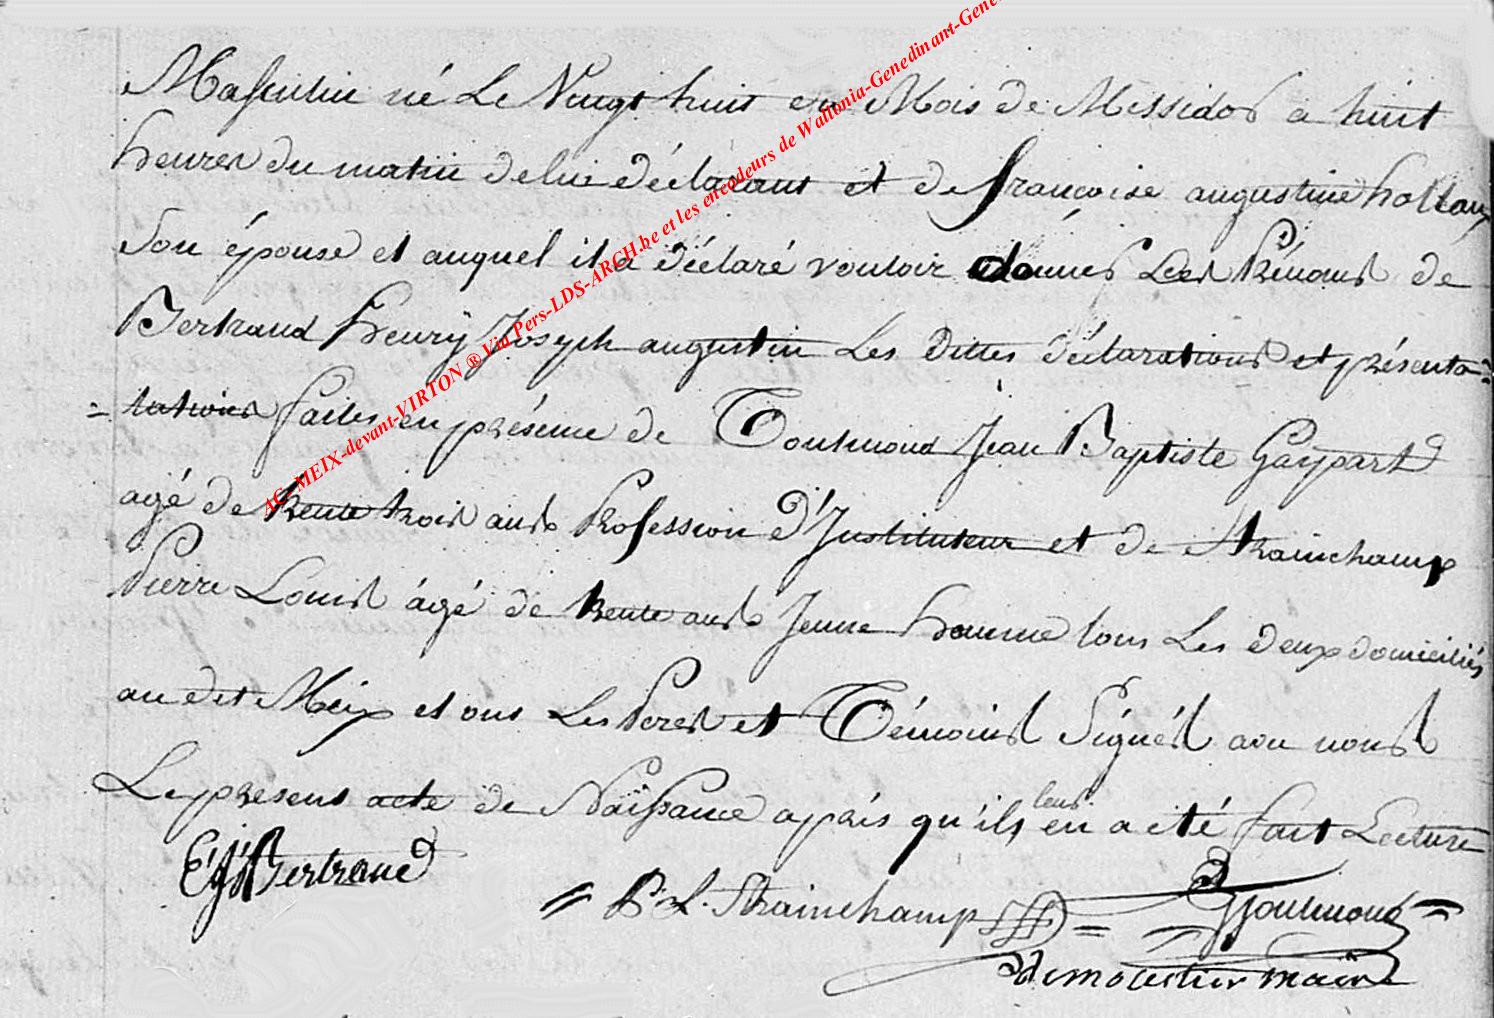 Masculin né Le Vingt huit du Mois de Messidor a huit
heures du matin de lui déclarant et de françoise augustine hollaux
Son épouse et auquel il a déclaré vouloir donner Les Prénoms de
Bertrand henrÿ Joseph augustin Les dittes déclarations et présenta=
=tations faites en présence de Toulmond Jean Baptiste Gaspard
agé de trente trois ans Profession d'Instituteur et de Strainchamp
Pierre Louis ágé de trente ans Jeune homme tous Les deux domiciliés
au det Meix et ont Les Peres et Témoins Signés avec nous
Le present acte de Naissance aprés qu'ils leur en a été fait Lecture
Bertrand
P. L. Strainchamp
Toulmond
maire
AC-MEIX-devant-VIRTON ® Via Pers-LDS-ARCH.be et les encodeurs de Wallonia-Genedinant-Gene